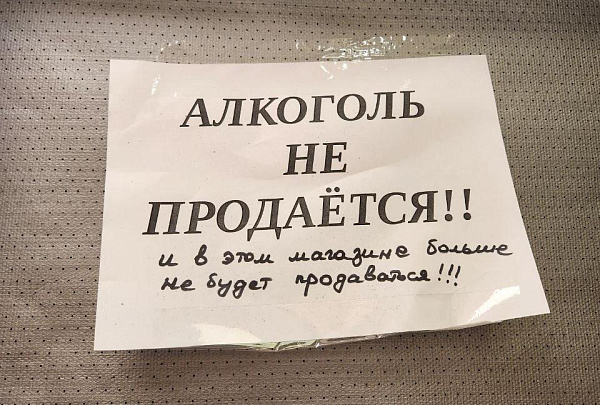 АЛКОГОЛЬ
НЕ
ПРОДАЁТСЯ!!
и в этом магазине больше
не будет продаваться!!!